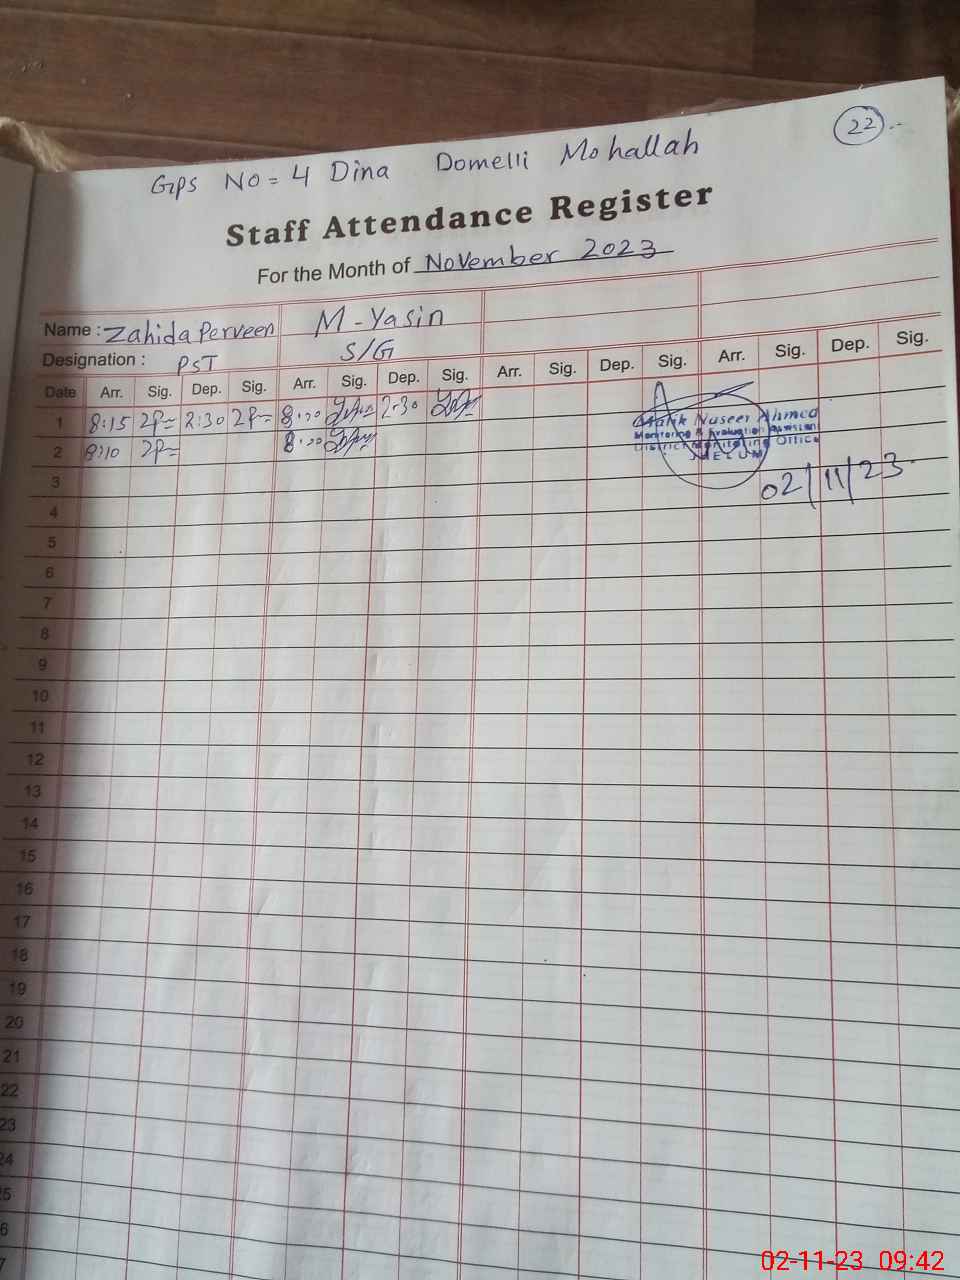 22
GPS No = 4 Dina Domelli Mohallah
Staff Attendance Register
For the Month of November 2023
Name : Zahida Perveen M-Yasin
Designation : PST S/G
Date Arr. Sig. Dep. Sig. Arr. Sig. Dep. Sig. Arr. Sig. Dep. Sig. Arr. Sig. Dep. Sig.
1 8:15 2:30 8:00 2:30
2 8:10 8:00
Malik Naseer Ahmed
Monitoring & Evaluation Assistant
District Monitoring Office
JHELUM
02/11/23
3
4
5
6
7
8
9
10
11
12
13
14
15
16
17
18
19
20
21
22
23
24
5
6
7
02-11-23 09:42